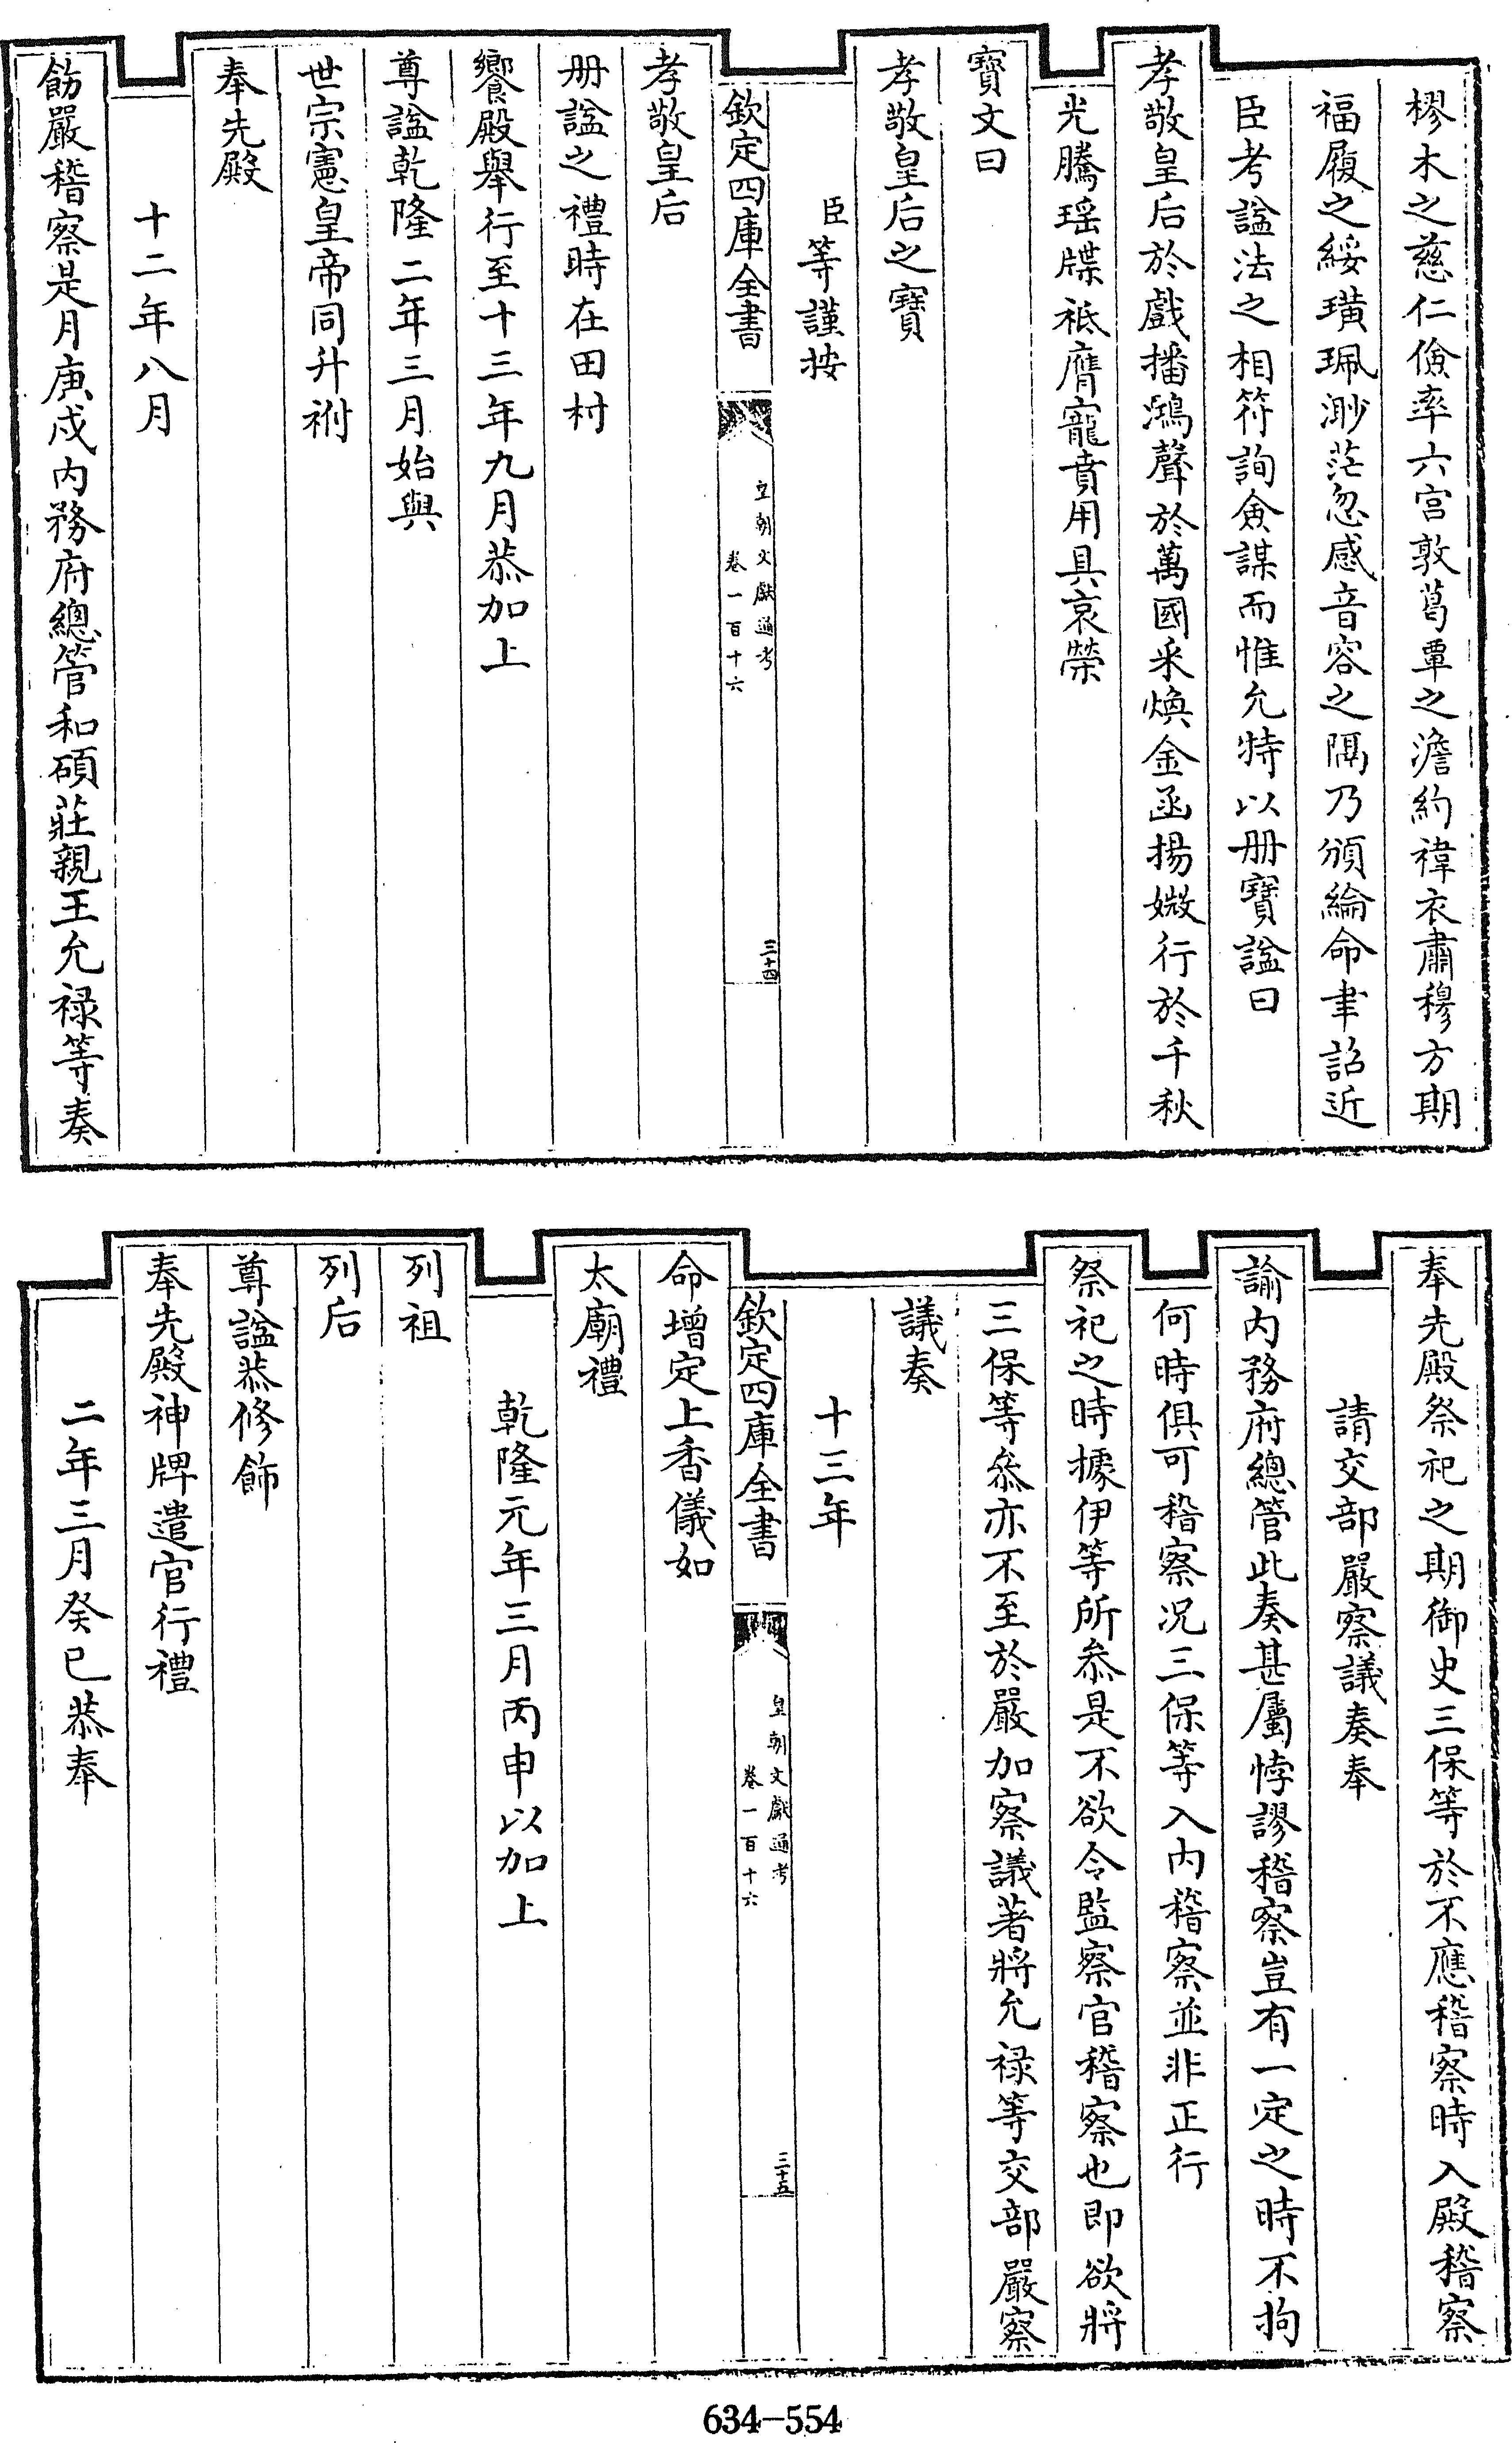 樛木之慈仁儉率六宮敦葛覃之澹約褘衣肅穆方期
福履之綏璜珮渺茫忽感音容之隔乃頒綸命聿詔近
臣考諡法之相符詢僉謀而惟允特以册寶諡曰
孝敬皇后於戲播鴻聲於萬國釆煥金函揚媺行於千秋
光騰瑶牒袛膺寵賁用具哀榮
寶文曰
孝敬皇后之寶
臣等謹按
欽定四庫全書
皇朝文獻通考
卷一百十六
三十四
孝敬皇后
册諡之禮時在田村
饗殿舉行至十三年九月恭加上
尊諡乾隆二年三月始與
世宗憲皇帝同升祔
奉先殿
十二年八月
飭嚴稽察是月庚戌内務府總管和碩莊親王允禄等奏
奉先殿祭祀之期御史三保等於不應稽察時入殿稽察
請交部嚴察議奏奉
諭内務府總管此奏甚屬悖謬稽察豈有一定之時不拘
何時俱可稽察况三保等入内稽察並非正行
祭祀之時據伊等所叅是不欲令監察官稽察也即欲將
三保等叅亦不至於嚴加察議著將允禄等交部嚴察
議奏
十三年
欽定四庫全書
皇朝文獻通考
卷一百十六
三十五
命增定上香儀如
太廟禮
乾隆元年三月丙申以加上
列祖
列后
尊諡恭修飾
奉先殿神牌遣官行禮
二年三月癸巳恭奉
634-554